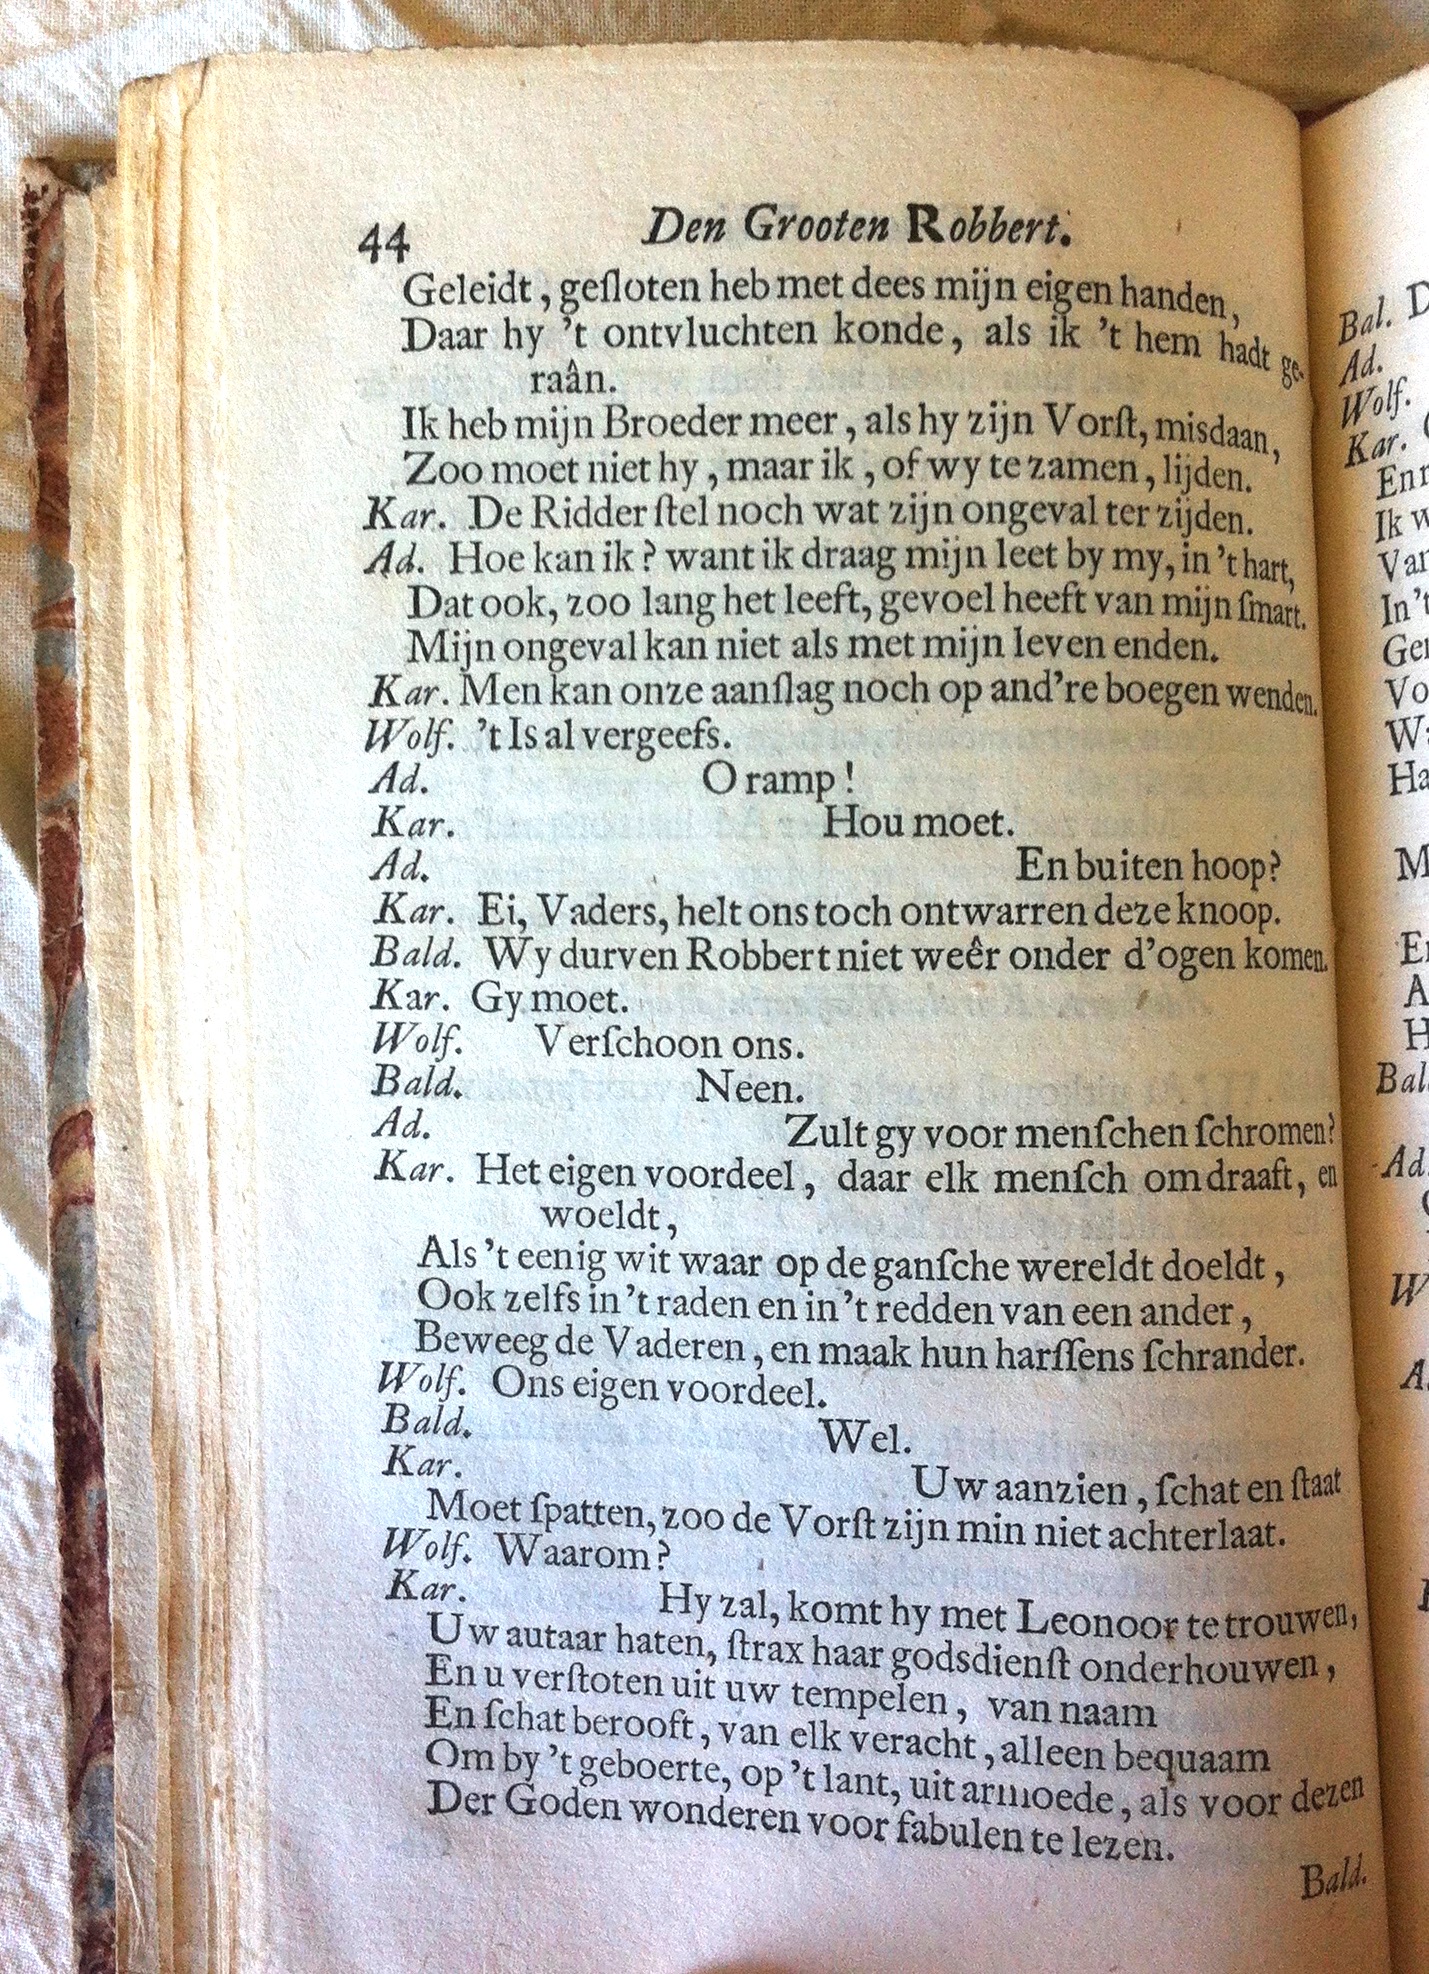 44 Den Grooten Robbert.
Geleidt, geſloten heb met dees mijn eigen handen,
Daar hy 't ontvluchten konde, als ik 't hem hadt ge-
raân.
Ik heb mijn Broeder meer, als hy zijn Vorſt, misdaan,
Zoo moet niet hy, maar ik, of wy te zamen, lijden.
Kar. De Ridder ſtel noch wat zijn ongeval ter zijden.
Ad. Hoe kan ik? want ik draag mijn leet by my, in 't hart,
Dat ook, zoo lang het leeft, gevoel heeft van mijn ſmart.
Mijn ongeval kan niet als met mijn leven enden.
Kar. Men kan onze aanſlag noch op and're boegen wenden.
Wolf. 't Is al vergeefs.
Ad. O ramp!
Kar. Hou moet.
Ad. En buiten hoop?
Kar. Ei, Vaders, helt ons toch ontwarren deze knoop.
Bald. Wy durven Robbert niet weêr onder d'ogen komen.
Kar. Gy moet.
Wolf. Verſchoon ons.
Bald. Neen.
Ad. Zult gy voor menſchen ſchromen?
Kar. Het eigen voordeel, daar elk menſch om draaft, en
woeldt,
Als 't eenig wit waar op de ganſche wereldt doeldt,
Ook zelfs in 't raden en in 't redden van een ander,
Beweeg de Vaderen, en maak hun harſſens ſchrander.
Wolf. Ons eigen voordeel.
Bald. Wel.
Kar. Uw aanzien, ſchat en ſtaat
Moet ſpatten, zoo de Vorſt zijn min niet achterlaat.
Wolf. Waarom?
Kar. Hy zal, komt hy met Leonoor te trouwen,
Uw autaar haten, ſtrax haar godsdienſt onderhouwen,
En u verſtoten uit uw tempelen, van naam
En ſchat berooft, van elk veracht, alleen bequaam
Om by 't geboerte, op 't lant, uit armoede, als voor dezen
Der Goden wonderen voor fabulen te lezen.
Bald.
Bal.
Ad.
Wolf.
Kar.
Ik
In 't
Bal.
Ad.